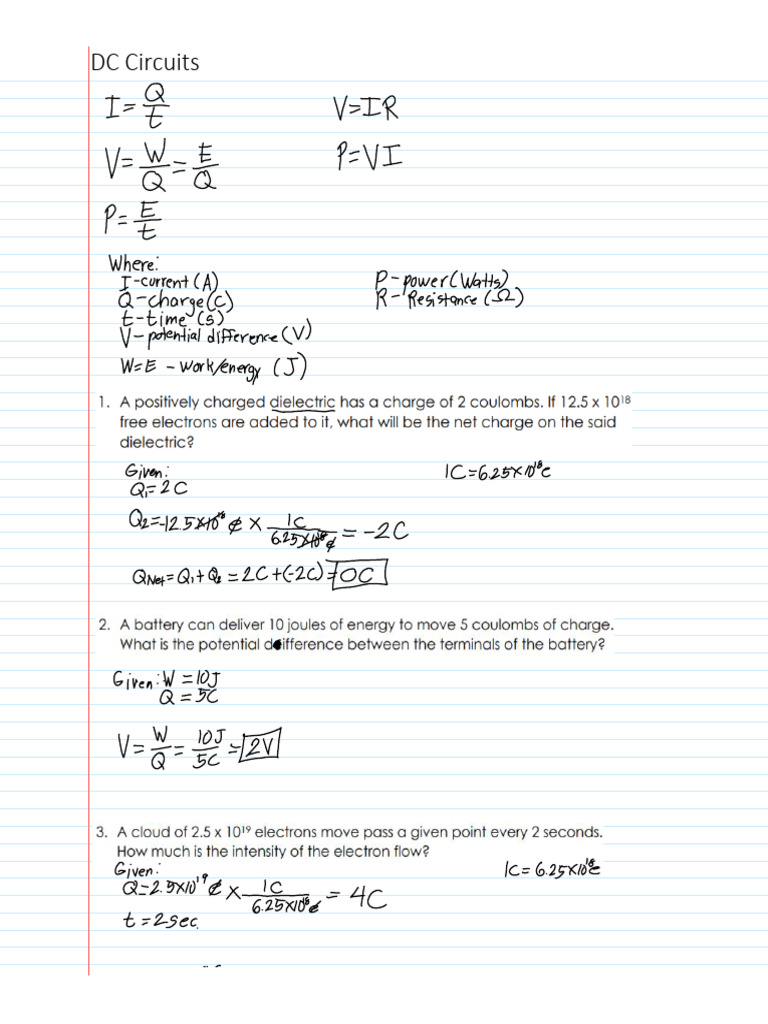 DC Circuits
I = Q/t
V = IR
V = W/Q = E/Q
P = VI
P = E/t
Where:
I - current (A)
P - power (Watts)
Q - charge (C)
R - Resistance (Ω)
t - time (s)
V - potential difference (V)
W = E - work/energy (J)
1. A positively charged dielectric has a charge of 2 coulombs. If 12.5 x 10¹⁸
free electrons are added to it, what will be the net charge on the said
dielectric?
Given:
1C = 6.25x10¹⁸e
Q₁ = 2C
Q₂ = -12.5x10¹⁸ e x 1C/6.25x10¹⁸e = -2C
QNet = Q₁ + Q₂ = 2C + (-2C) = 0C
2. A battery can deliver 10 joules of energy to move 5 coulombs of charge.
What is the potential difference between the terminals of the battery?
Given: W = 10J
Q = 5C
V = W/Q = 10J/5C = 2V
3. A cloud of 2.5 x 10¹⁹ electrons move pass a given point every 2 seconds.
How much is the intensity of the electron flow?
Given:
1C = 6.25x10¹⁸e
Q = 2.5x10¹⁹ e x 1C/6.25x10¹⁸e = 4C
t = 2sec.